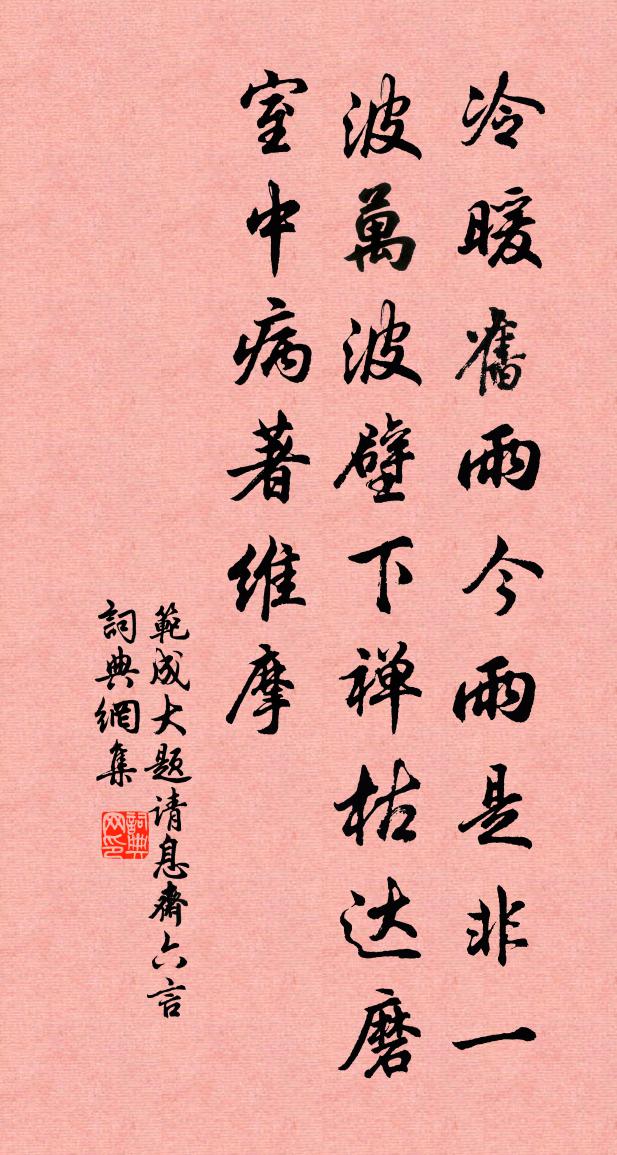 冷暖舊雨今雨是非一
波萬波壁下禅枯达磨
室中病著维摩
範成大题请息齋六言
詞典網集
詞典网印